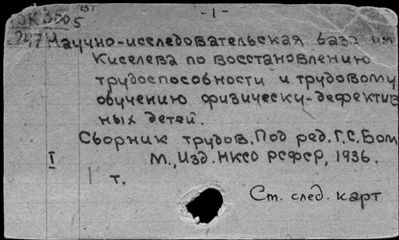 - 1 -
Научно-исследовательская база им
Киселева по восстановлению
трудоспособности и трудовому
обучению физически-дефектив
ных детей.
Сборник трудов. Под ред. Г.С. Бом
I М., Изд. НКСО РСФСР, 1936.
т.
Ст. след. карт